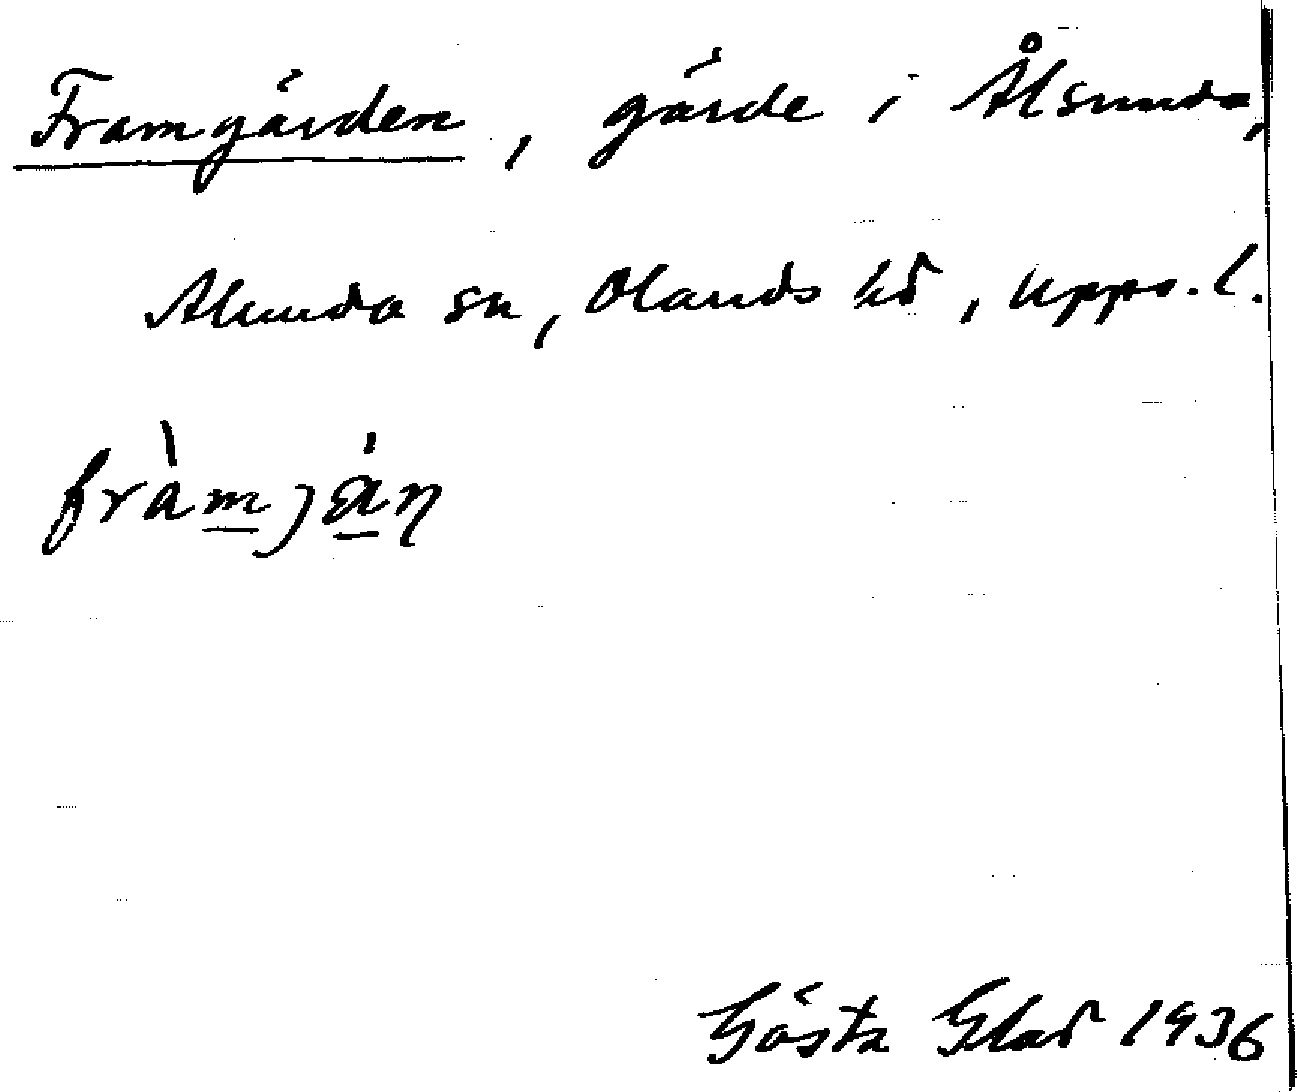 Framgärden, gärde i Ålsunda,
Alunda sn, Olands hd, Upps. l.
fràmjæ̀η
Gösta Glad 1936